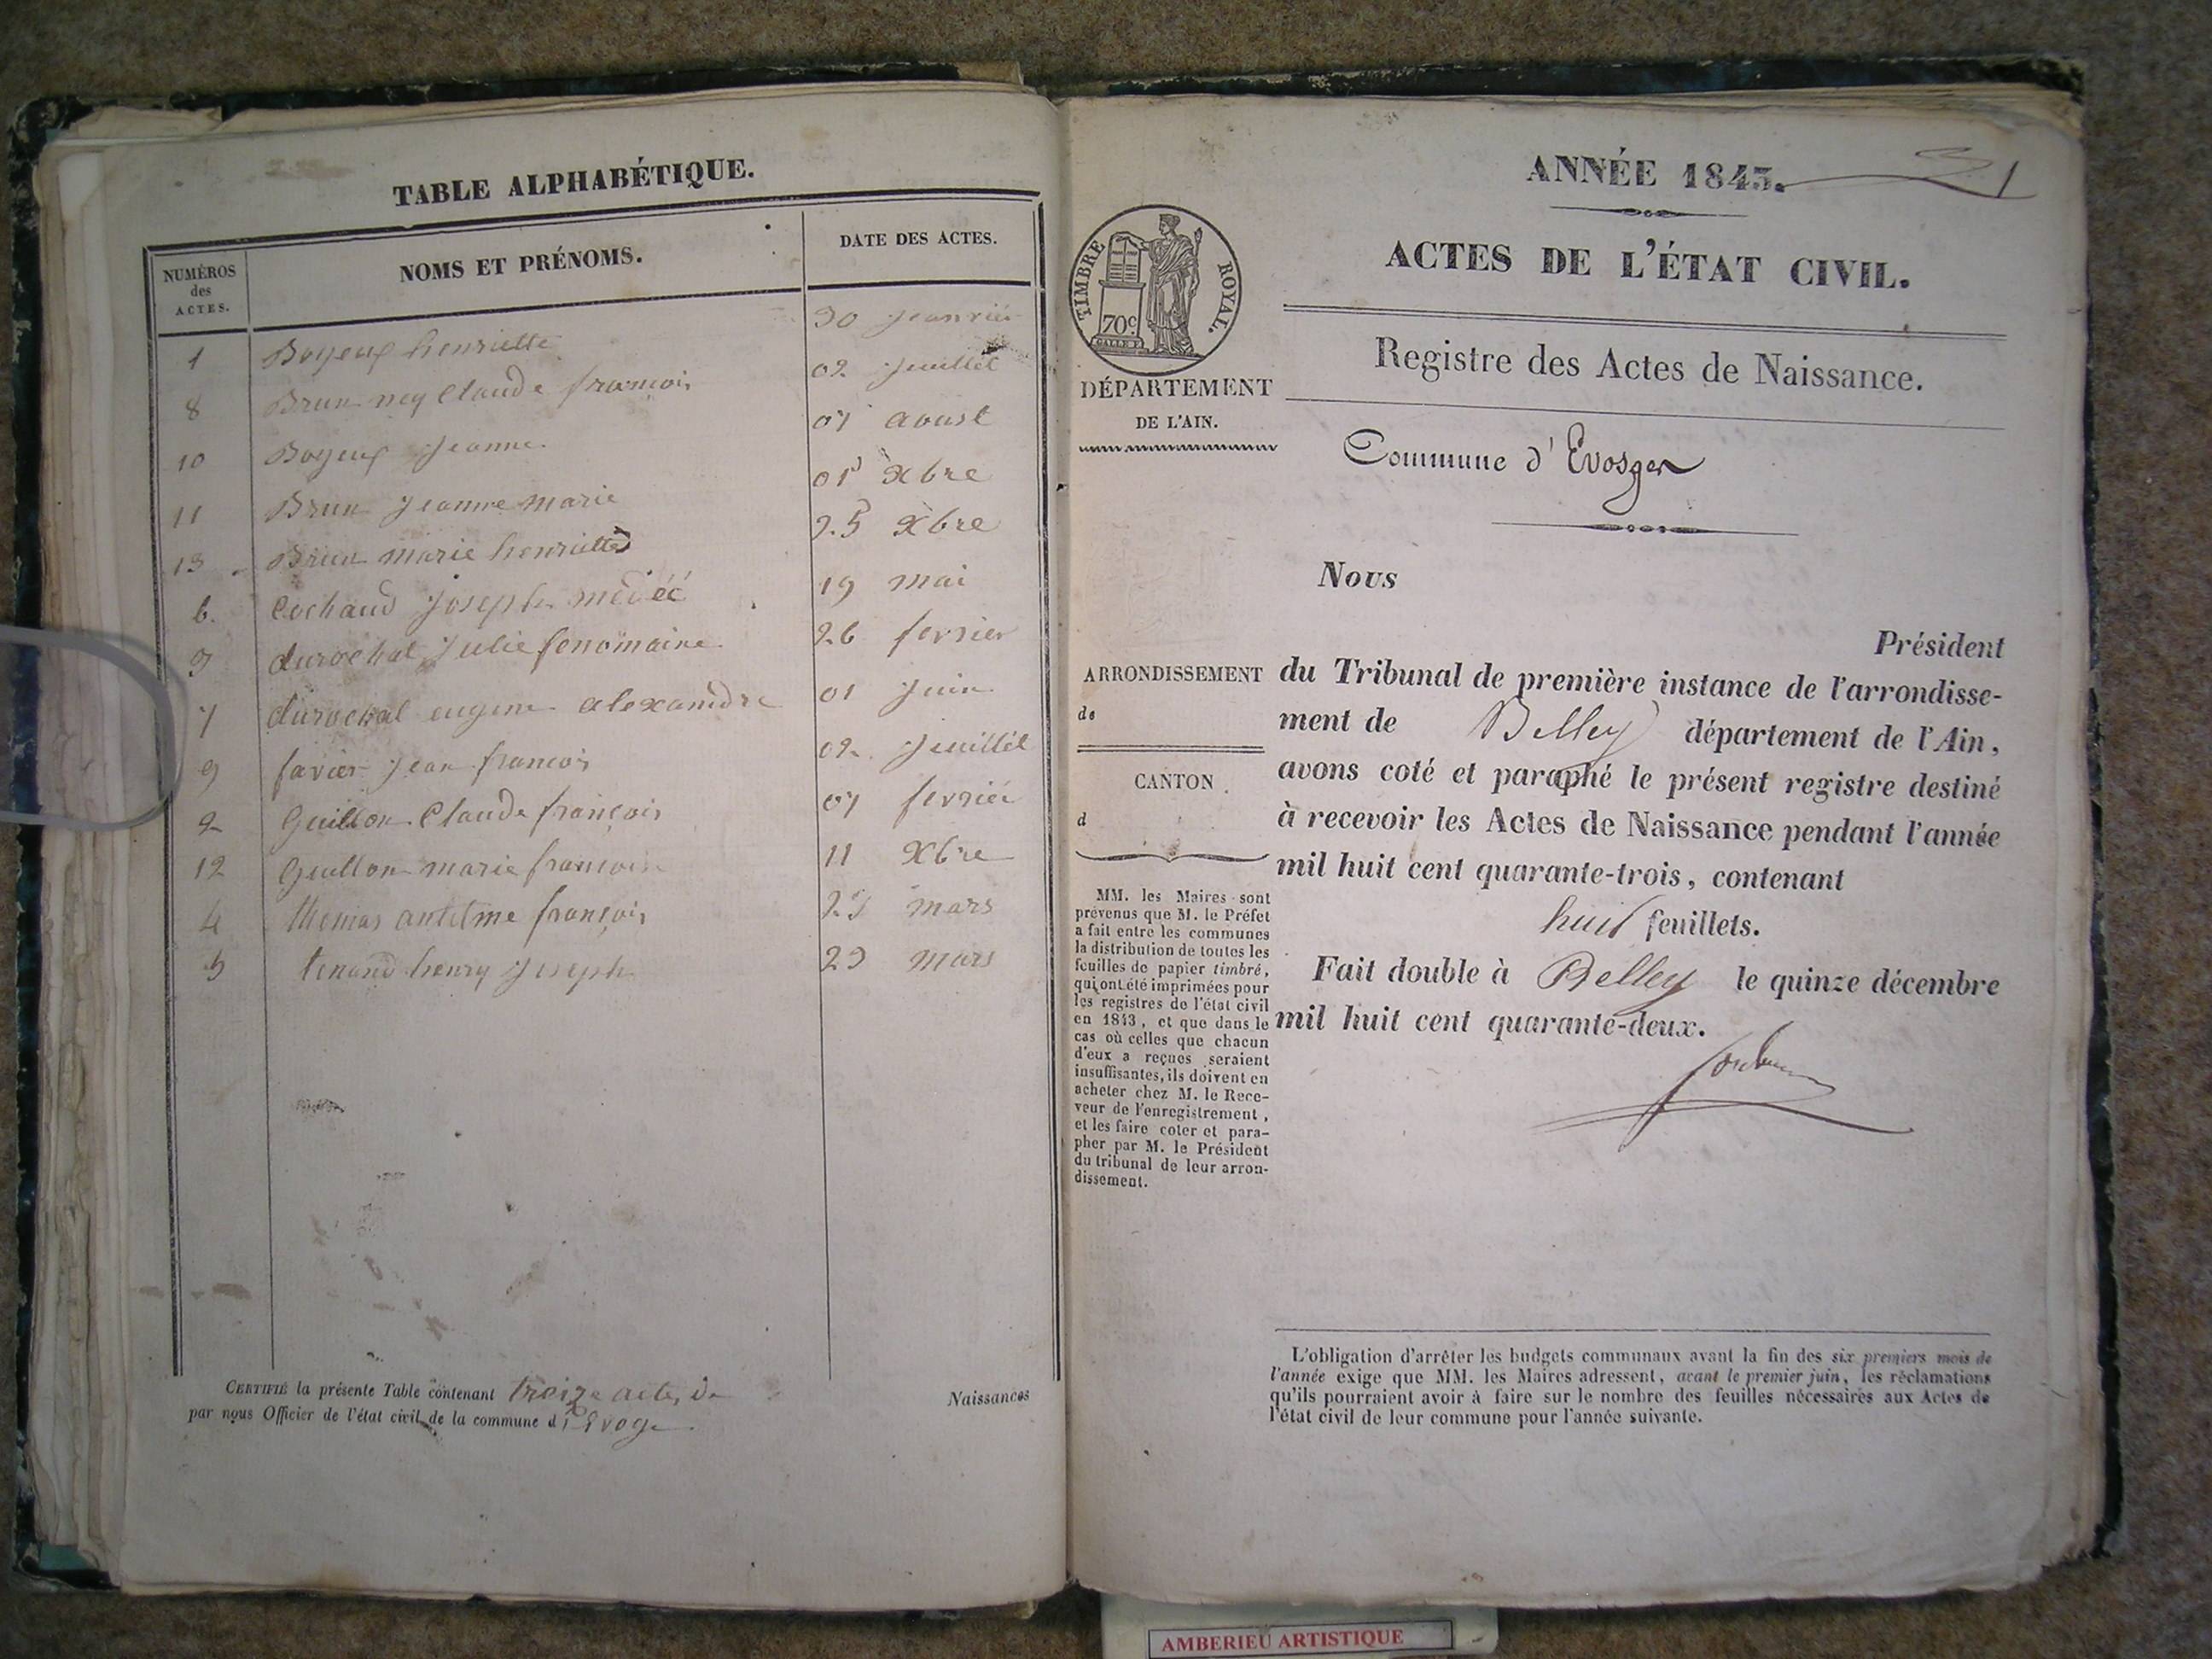 TABLE ALPHABÉTIQUE.
NUMÉROS des ACTES. NOMS ET PRÉNOMS. DATE DES ACTES.
1 Boyeux henriette 30 Jeanvier
8 Brun ney Claude françois 02 Jeuillet
10 Boyeux Jeanne 07 aoust
11 Brun Jeanne marie 01 xbre
13 Brun marie henriette 25 xbre
6. Cochaud Joseph 19 mai
3 durochat Julie 26 fevrier
7 durochat eugene alexandre 01 Juin
9 favier Jean francois 02 Jeuillet
2 Guillon Claude françois 07 fevrier
12 Guillon marie 11 Xbre
4 thomas antelme françois 23 mars
5 tenand henry Joseph 29 mars
CERTIFIÉ la présente Table contenant treize actes de Naissances
par nous Officier de l'état civil de la commune d'Evoge
1
ANNÉE 1843.
ACTES DE L'ÉTAT CIVIL.
TIMBRE ROYAL.
70c
Registre des Actes de Naissance.
DÉPARTEMENT
DE L'AIN.
Commune d'Evosges
Nous
Président
ARRONDISSEMENT
de
CANTON
d
du Tribunal de première instance de l'arrondisse-
ment de Belley département de l'Ain,
avons coté et paraphé le présent registre destiné
à recevoir les Actes de Naissance pendant l'année
mil huit cent quarante-trois, contenant
huit feuillets.
Fait double à Belley le quinze décembre
mil huit cent quarante-deux.
MM. les Maires sont
prévenus que M. le Préfet
a fait entre les communes
la distribution de toutes les
feuilles de papier timbré,
qui ont été imprimées pour
les registres de l'état civil
en 1843, et que dans le
cas où celles que chacun
d'eux a reçues seraient
insuffisantes, ils doivent en
acheter chez M. le Rece-
veur de l'enregistrement,
et les faire coter et para-
pher par M. le Président
du tribunal de leur arron-
dissement.
L'obligation d'arrêter les budgets communaux avant la fin des six premiers mois de
l'année exige que MM. les Maires adressent, avant le premier juin, les réclamations
qu'ils pourraient avoir à faire sur le nombre des feuilles nécessaires aux Actes de
l'état civil de leur commune pour l'année suivante.
AMBERIEU ARTISTIQUE